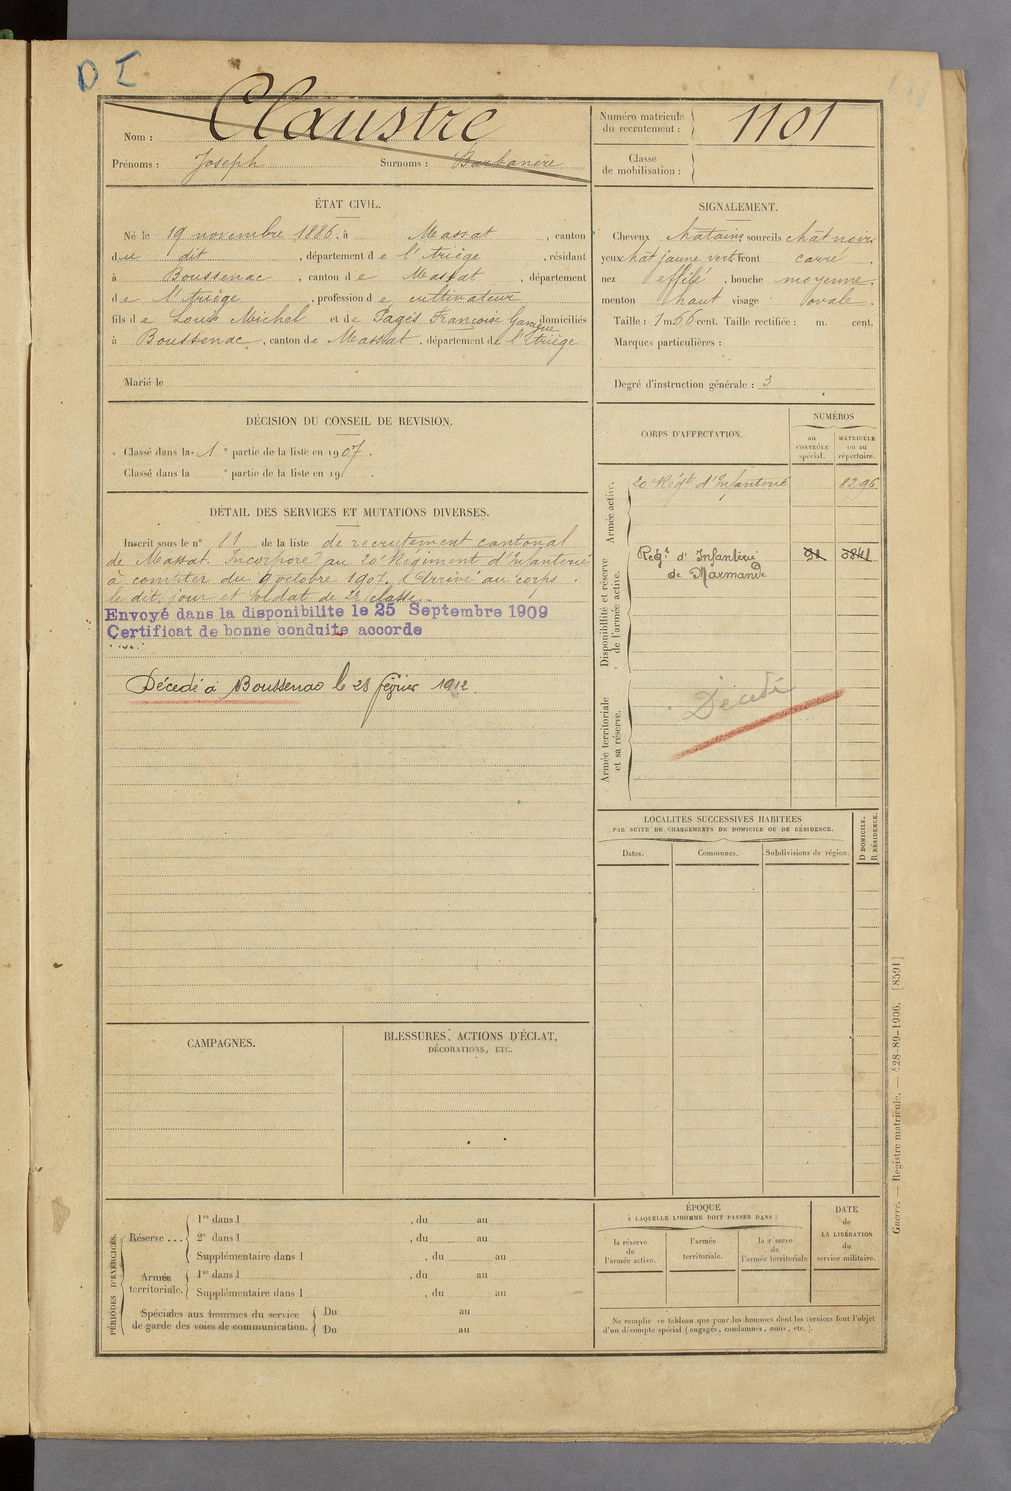 D I
Nom : Claustre
Prénoms : Joseph Surnoms : Barbanère
Numéro matricule du recrutement : 1101
Classe de mobilisation :
ÉTAT CIVIL.
Né le 19 novembre 1886, à Massat, canton
du dit, département de l'Ariège, résidant
à Boussenac, canton de Massat, département
de l'Ariège, profession de cultivateur
fils de Louis Michel et de Pagès Françoise domiciliés
à Boussenac, canton de Massat, département de l'Ariège
Marié le
SIGNALEMENT.
Cheveux chatains sourcils chât noirs
yeux chât jaune vert front carré,
nez effilé, bouche moyenne,
menton haut visage ovale.
Taille : 1 m 66 cent. Taille rectifiée : m. cent.
Marques particulières :
Degré d'instruction générale : 3
DÉCISION DU CONSEIL DE REVISION.
Classé dans la 1e partie de la liste en 1907.
Classé dans la e partie de la liste en 19 .
DÉTAIL DES SERVICES ET MUTATIONS DIVERSES.
Inscrit sous le n° 81 de la liste de recrutement cantonal
de Massat. Incorporé au 20e Régiment d'Infanterie
à compter du octobre 1907. Arrivé au corps
le dit jour et soldat de 2e classe.
Envoyé dans la disponibilite le 25 Septembre 1909
Certificat de bonne conduite accorde
Décédé à Boussenac le 28 février 1912.
CORPS D'AFFECTATION.
NUMÉROS
au CONTRÔLE spécial.
MATRICULE ou au répertoire.
Armée active.
20e Régt d'Infanterie 8296
Disponibilité et réserve de l'armée active.
Régt d'Infanterie
de Marmande
Armée territoriale et sa réserve.
Décédé
LOCALITÉS SUCCESSIVES HABITÉES
PAR SUITE DE CHANGEMENTS DE DOMICILE OU DE RÉSIDENCE.
Dates. Communes. Subdivisions de région.
D DOMICILE.
R RÉSIDENCE.
CAMPAGNES.
BLESSURES, ACTIONS D'ÉCLAT,
DÉCORATIONS, ETC.
PÉRIODES D'EXERCICES.
Réserve ... 1re dans l , du au
2e dans l , du au
Supplémentaire dans l , du au
Armée territoriale. 1re dans l , du au
Supplémentaire dans l , du au
Spéciales aux hommes du service Du au
de garde des voies de communication. Du au
ÉPOQUE
À LAQUELLE L'HOMME DOIT PASSER DANS :
la réserve de l'armée active.
l'armée territoriale.
la réserve de l'armée territoriale
DATE
de
LA LIBÉRATION
du
service militaire.
Ne remplir ce tableau que pour les hommes dont les services font l'objet
d'un décompte spécial (engagés, condamnés, omis, etc.).
Guerre. — Registre matricule. — 428-89-1906. [8591]